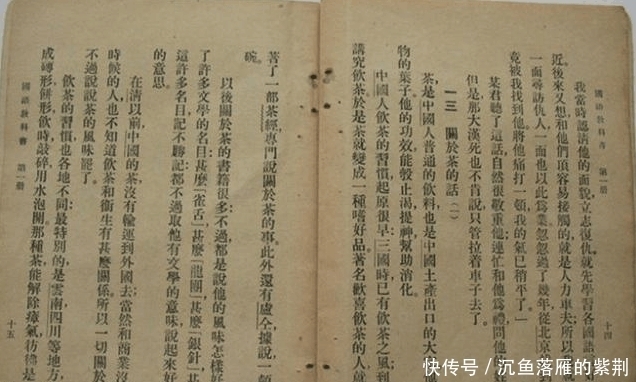 國語教科書 第一册
十四
我當時認清他的面貌立志復仇就先學習各國語
近後來又想和他們頂容易接觸的就是人力車夫所以
一面尋訪仇人一面也以此為業忽忽過了幾年從北京
竟被我找到他將他痛打一頓我的氣已稍平了」
某君聽了這話自然很敬重他連忙和他為禮問他
但是那大漢死也不肯說只管拉着車子去了
一三 關於茶的話(一)
茶是中國人普通的飲料也是中國土產出口的大
物的葉子他的功效能彀止渴提神幫助消化
中國人飲茶的習慣起原很早三國時已有飲茶之風到
講究飲茶於是茶就變成一種嗜好品著名歡喜飲茶的人就
著了一部茶經專門說關於茶的事此外還有盧仝據說一頓
碗
以後關於茶的書籍很多不過都是說他的風味怎樣好
了許多文學的名目甚麼「雀舌」甚麼「龍團」甚麼「銀針」甚
這許多名目記不勝記都不過取他有文學的意味說起來好
的意思
在清以前中國的茶沒有輸運到外國去當然和商業沒
時候的人也不知道飲茶和衛生有甚麼關係所以一切關於
不過說說茶的風味罷了
飲茶的習慣也各地不同最特別的是雲南四川等地方
成磚形餅形飲時敲碎用水泡開那種茶能解除瘴氣彷彿是
國語教科書 第一册
十五
快传号/沉鱼落雁的紫荆